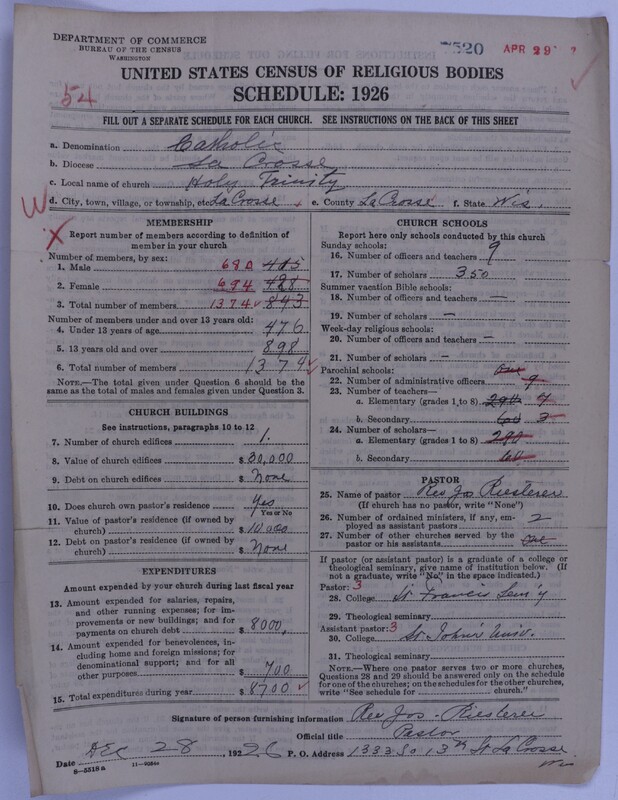 DEPARTMENT OF COMMERCE
BUREAU OF THE CENSUS
WASHINGTON
520 APR 29
UNITED STATES CENSUS OF RELIGIOUS BODIES
SCHEDULE: 1926
54
FILL OUT A SEPARATE SCHEDULE FOR EACH CHURCH. SEE INSTRUCTIONS ON THE BACK OF THIS SHEET
a. Denomination Catholic
b. Diocese La Crosse
c. Local name of church Holy Trinity
W d. City, town, village, or township, etc. La Crosse e. County La Crosse f. State Wis.
X
MEMBERSHIP
Report number of members according to definition of
member in your church
Number of members, by sex:
1. Male 680 415
2. Female 694 428
3. Total number of members 1374 843
Number of members under and over 13 years old:
4. Under 13 years of age 476
5. 13 years old and over 898
6. Total number of members 1374
NOTE.—The total given under Question 6 should be
same as the total of males and females given under Question 3.
CHURCH BUILDINGS
See instructions, paragraphs 10 to 12
7. Number of church edifices 1.
8. Value of church edifices $ 30,000
9. Debt on church edifices $ None
10. Does church own pastor's residence Yes
Yes or No
11. Value of pastor's residence (if owned by
church) $ 10,000
12. Debt on pastor's residence (if owned by
church) $ None
EXPENDITURES
Amount expended by your church during last fiscal year
13. Amount expended for salaries, repairs,
and other running expenses; for im-
provements or new buildings; and for
payments on church debt $ 8000,
14. Amount expended for benevolences, in-
cluding home and foreign missions; for
denominational support; and for all
other purposes $ 700
15. Total expenditures during year $ 8700
CHURCH SCHOOLS
Report here only schools conducted by this church
Sunday schools:
16. Number of officers and teachers 9
17. Number of scholars 350
Summer vacation Bible schools:
18. Number of officers and teachers —
19. Number of scholars —
Week-day religious schools:
20. Number of officers and teachers —
21. Number of scholars —
Parochial schools:
22. Number of administrative officers 9
23. Number of teachers—
a. Elementary (grades 1 to 8) 290
b. Secondary 60 3
24. Number of scholars—
a. Elementary (grades 1 to 8) 290
b. Secondary 60
PASTOR
25. Name of pastor Rev Jos Riesterer
(If church has no pastor, write "None")
26. Number of ordained ministers, if any, em-
ployed as assistant pastors 2
27. Number of other churches served by the
pastor or his assistants One
If pastor (or assistant pastor) is a graduate of a college or
theological seminary, give name of institution below. (If
not a graduate, write "No" in the space indicated.)
Pastor: 3
28. College St Francis Sem'y
29. Theological seminary
Assistant pastor: 3
30. College St. John's Univ.
31. Theological seminary
NOTE.—Where one pastor serves two or more churches,
Questions 28 and 29 should be answered only on the schedule
for one of the churches; on the schedules for the other churches,
write "See schedule for church."
Signature of person furnishing information Rev Jos. Riesterer
Official title Pastor
Date Dec 28 1926 P. O. Address 1333 So 13th St La Crosse
Wis
8—5518a